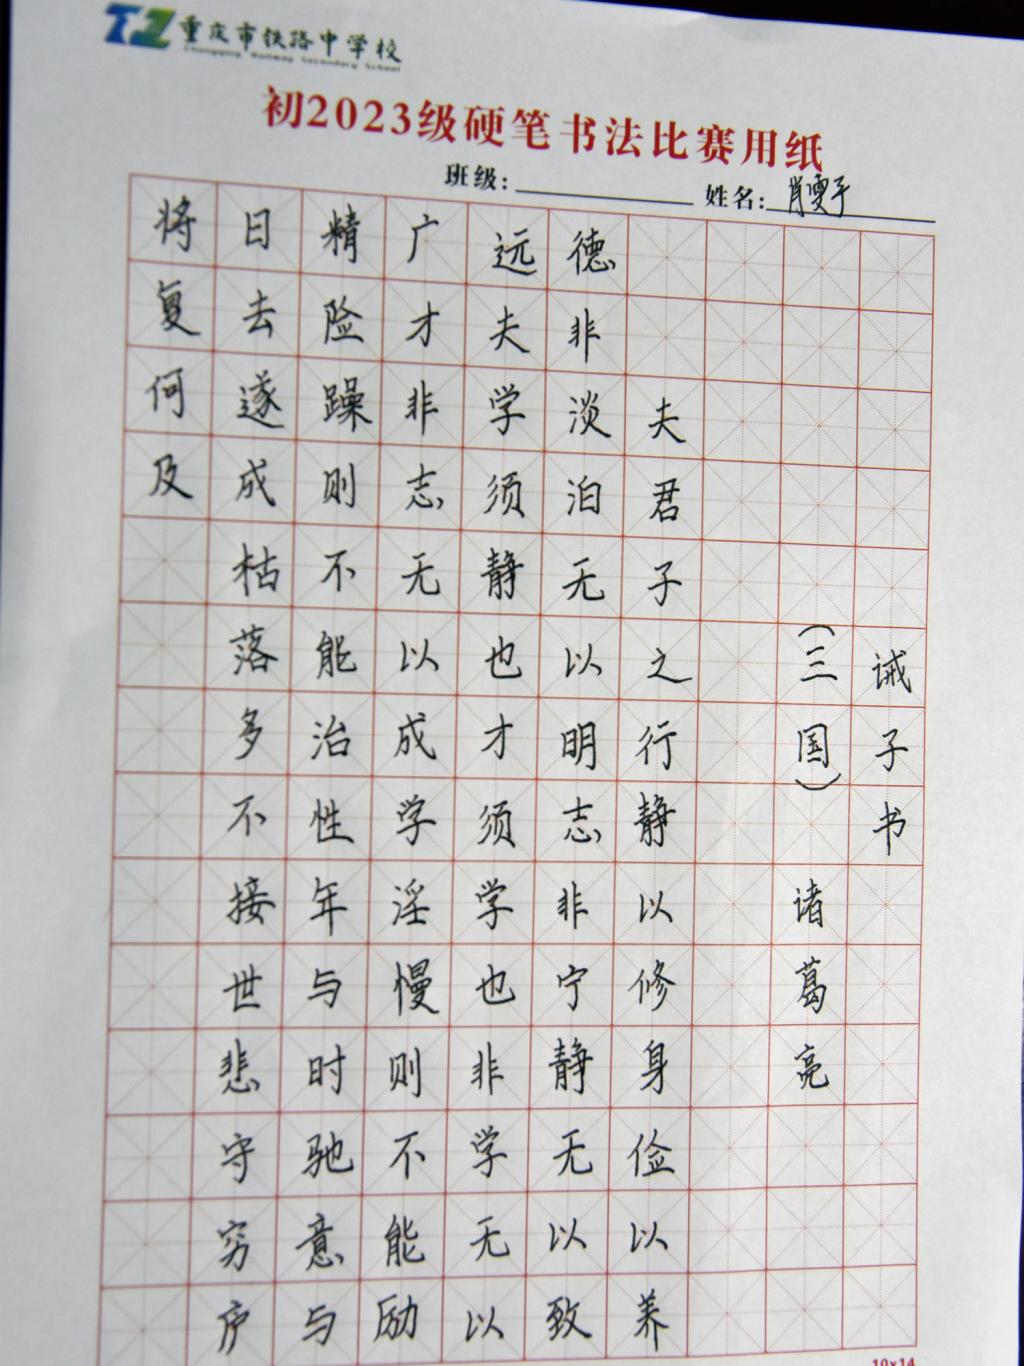 重庆市铁路中学校
Chongqing Railway Secondary School
初2023级硬笔书法比赛用纸
班级：
姓名：肖子
诫子书
（三国）诸葛亮
夫君子之行静以修身俭以养
德非淡泊无以明志非宁静无以致
远夫学须静也才须学也非学无以
广才非志无以成学淫慢则不能励
精险躁则不能治性年与时驰意与
日去遂成枯落多不接世悲守穷庐
将复何及
10×14